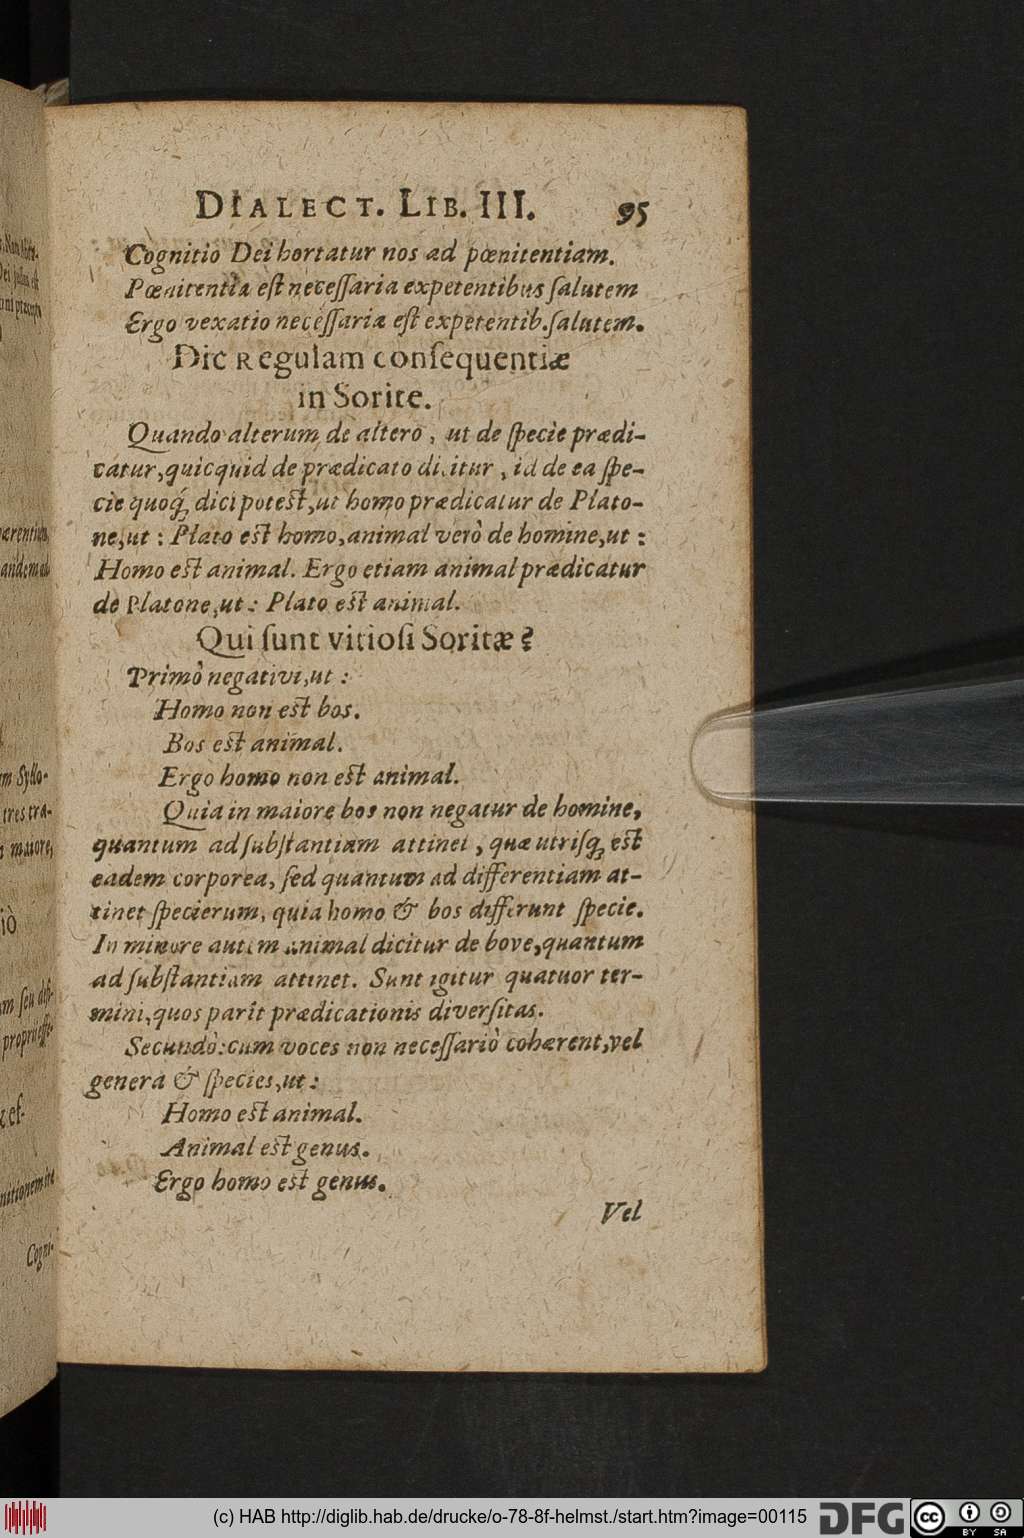 DIALECT. LIB. III. 95
Cognitio Dei hortatur nos ad pœnitentiam.
Pœnitentia est neceſſaria expetentibus ſalutem
Ergo vexatio neceſſaria est expetentib. ſalutem.
Dic Regulam conſequentiæ
in Sorite.
Quando alterum de altero, ut de ſpecie prædi-
catur, quicquid de prædicato dicitur, id de ea ſpe-
cie quoq́; dici potest, ut homo prædicatur de Plato-
ne, ut: Plato est homo, animal verò de homine, ut:
Homo est animal. Ergo etiam animal prædicatur
de Platone, ut: Plato est animal.
Qui ſunt vitioſi Soritæ?
Primò negativi, ut:
Homo non est bos.
Bos est animal.
Ergo homo non est animal.
Quia in maiore bos non negatur de homine,
quantum ad ſubſtantiam attinet, quæ utriſq; est
eadem corporea, ſed quantum ad differentiam at-
tinet ſpecierum, quia homo & bos differunt ſpecie.
In minore autem animal dicitur de bove, quantum
ad ſubſtantiam attinet. Sunt igitur quatuor ter-
mini, quos parit prædicationis diverſitas.
Secundò: cum voces non neceſſariò cohærent, vel
genera & ſpecies, ut:
Homo est animal.
Animal est genus.
Ergo homo est genus.
Vel
(c) HAB http://diglib.hab.de/drucke/o-78-8f-helmst./start.htm?image=00115
DFG
CC BY SA